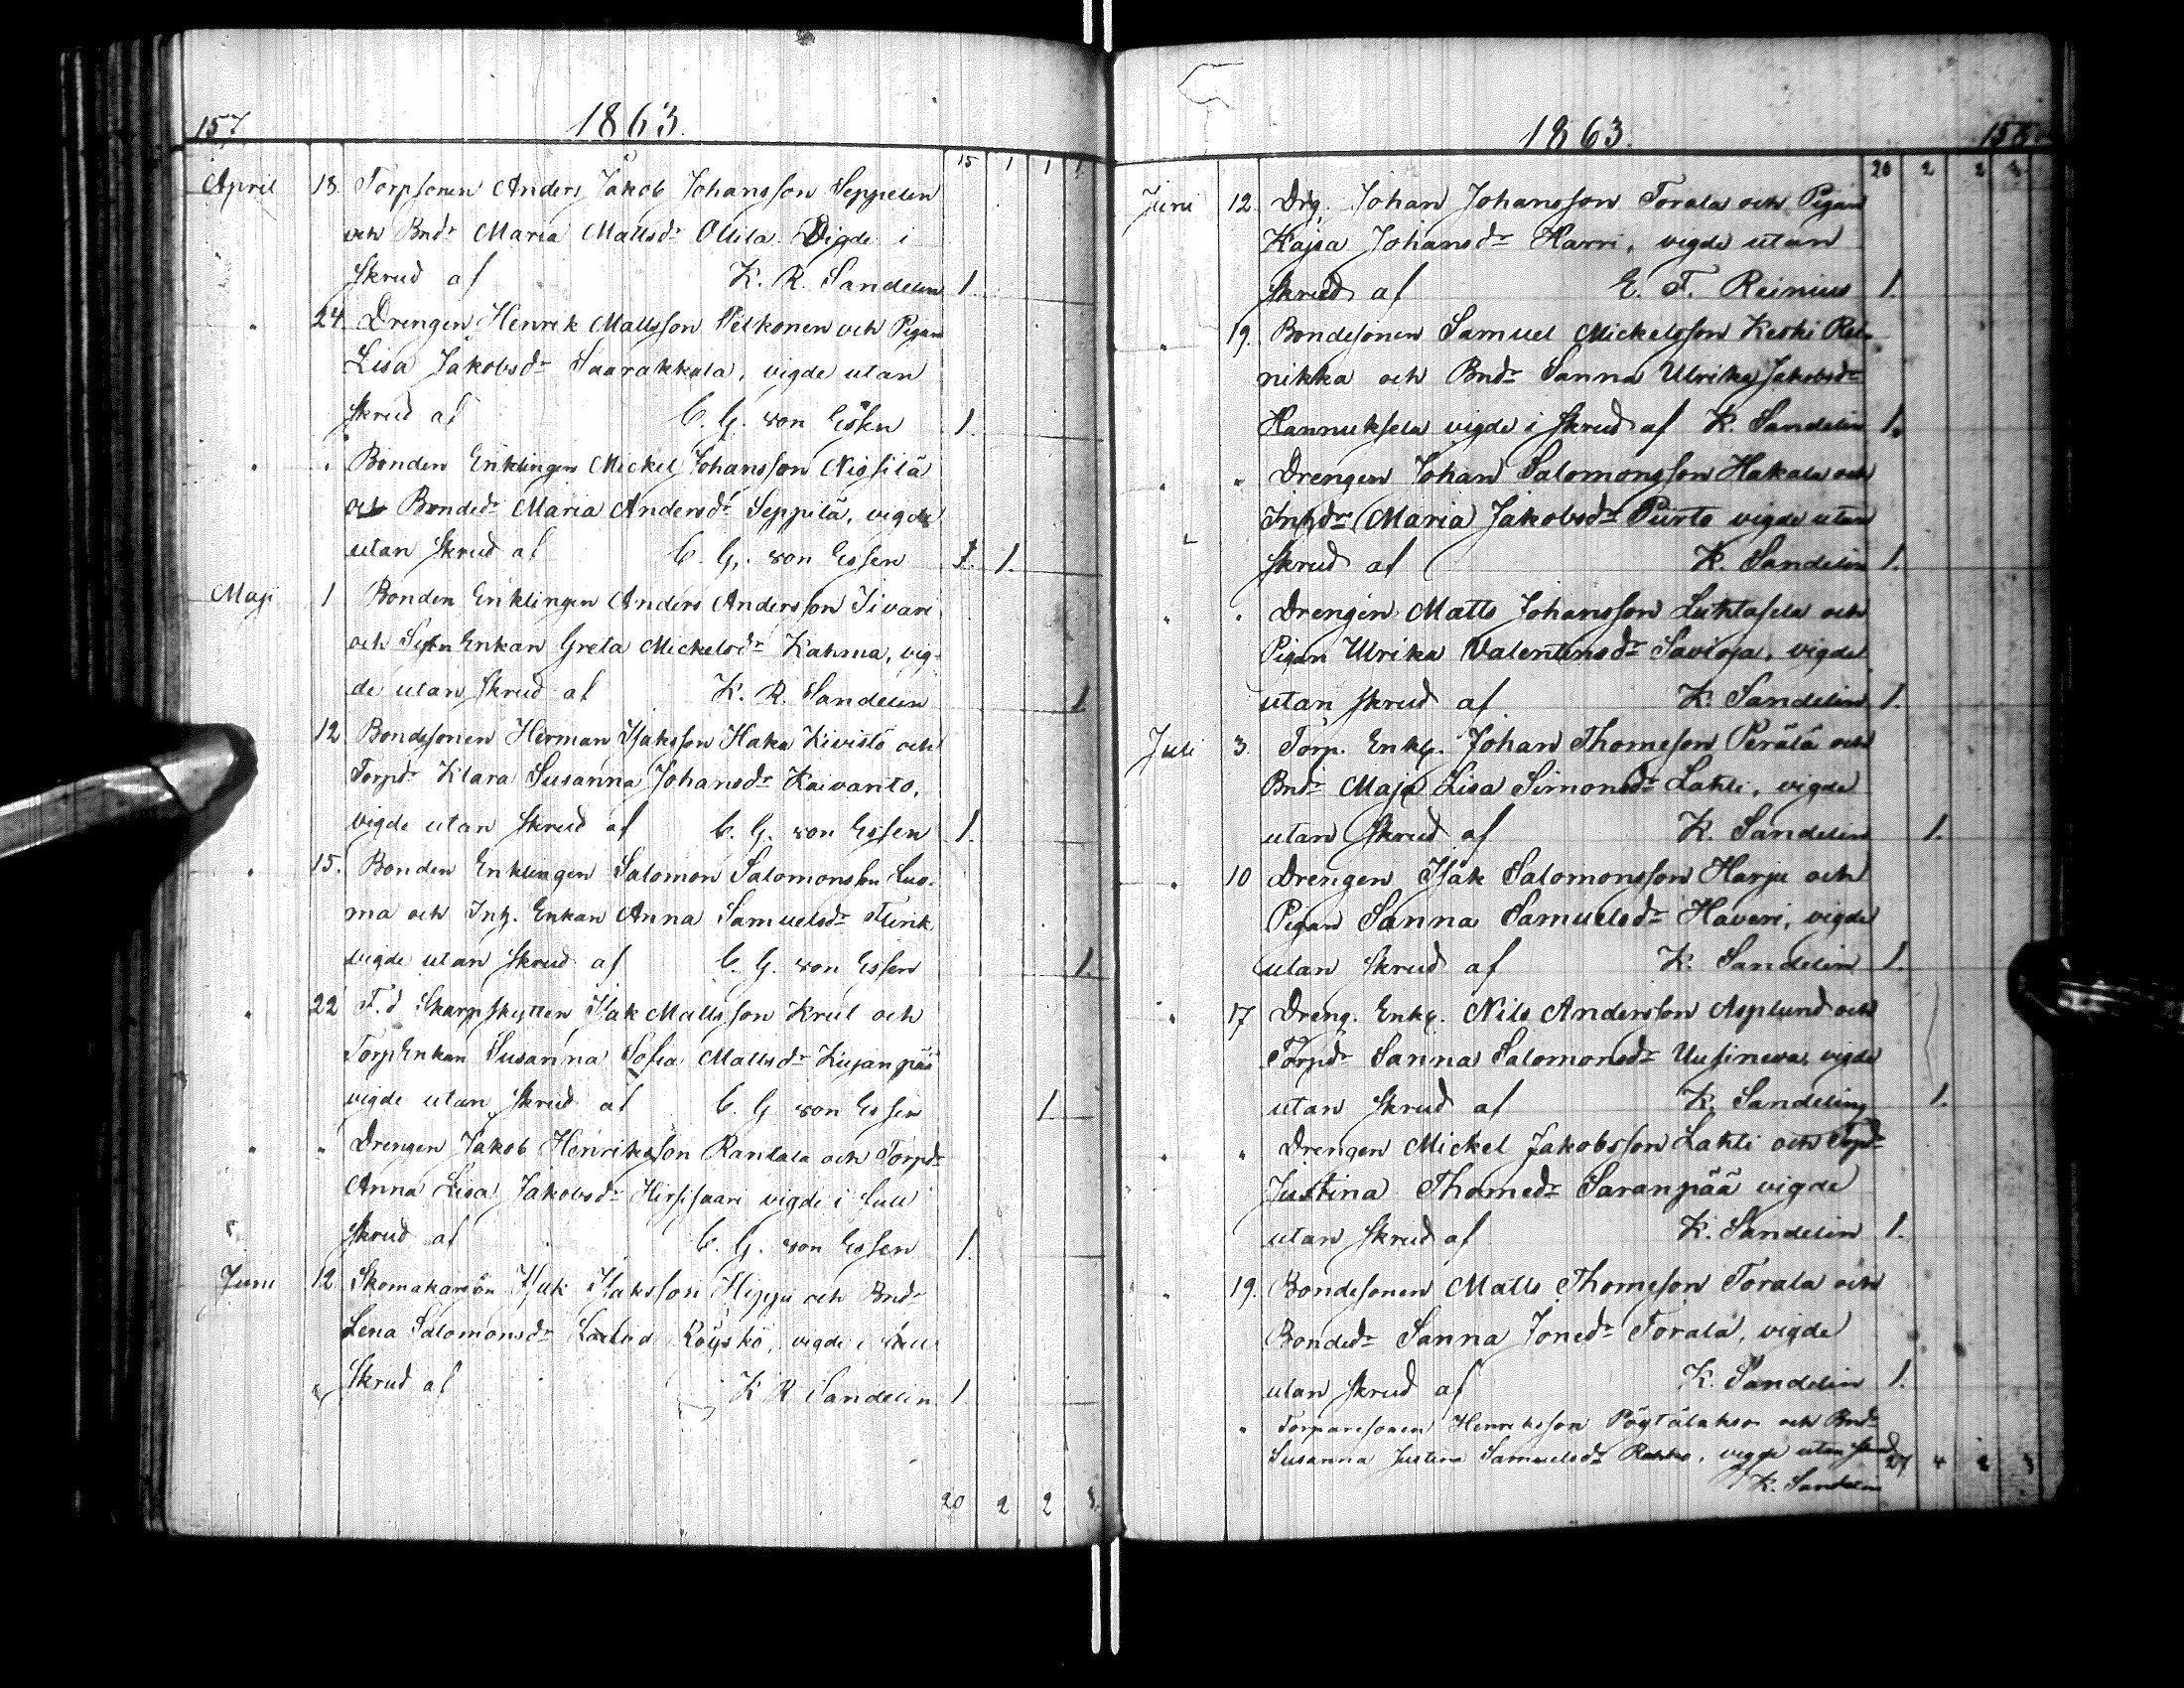 157
1863.
15 1 1 1
April 18. Torpsonen Anders Jakob Johansson Seppelin
och Bndr Maria Mattsdr Ollila. Vigde i
skrud af K. R. Sandelin 1.
" 24. Drengen Henrik Mattsson Pelkonen och Pigan
Lisa Jakobsdr Saarakkala, vigde utan
skrud af C. G. von Essen 1.
" " Bonden Enklingen Mickel Johansson Nissilä
och Bondedr Maria Andersdr Seppilä, vigde
utan skrud af C. G. von Essen 1.
Maji 1 Bonden Enklingen Anders Andersson Iivari
och Enkan Greta Mickelsdr Kahma, vig-
de utan skrud af K. R. Sandelin 1
12 Bondesonen Herman Isaksson Haka Kivistö och
Torpdr Klara Susanna Johansdr Kaivanto,
vigde utan skrud af C. G. von Essen 1.
" 15. Bonden Enklingen Salomon Salomonsson Luo-
ma och Inh. Enkan Anna Samuelsdr Flink
vigde utan skrud af C. G. von Essen 1.
" 22 F.d Skarpskytten Isak Mattsson Krut och
TorpEnkan Susanna Sofia Mattsdr Kujanpää
vigde utan skrud af C. G. von Essen 1
" " Drengen Jakob Henriksson Rantala och Torpdr
Anna Lisa Jakobsdr Hirsisaari vigde i full
skrud af C. G. von Essen 1.
Juni 12 Skomakareson Isak Isaksson Hippi och Bndr
Lena Salomonsdr Röyskö, vigde i full
skrud af K R Sandelin 1.
20 2 2 3.
1863.
158
20 2 2 3
Juni 12. Drg. Johan Johansson Torala och Pigan
Kajsa Johansdr Harri, vigde utan
skrud af E. F. Reinius 1.
" 19. Bondesonen Samuel Mickelsson Keski Rei-
nikka och Bndr Sanna Ulrika Jakobsdr
Hannuksela vigde i skrud af K. Sandelin 1.
" " Drengen Johan Salomonsson Hakala och
Inhdr Maria Jakobsdr Piirto vigde utan
skrud af K. Sandelin 1.
" " Drengen Matts Johansson Luhtasela och
Pigan Ulrika Valentinsdr Savioja, vigde
utan skrud af K. Sandelin 1.
Juli 3. Torp. Enkl. Johan Thomeson Perälä och
Bndr Maja Lisa Simonsdr Lahti, vigde
utan skrud af K. Sandelin 1.
" 10 Drengen Isak Salomonsson Harju och
Pigan Sanna Samuelsdr Haveri, vigde
utan skrud af K. Sandelin 1.
" 17 Dreng. Enkl. Nils Andersson Asplund och
Torpdr Sanna Salomonsdr Uusineva, vigde
utan skrud af K. Sandelin 1.
" " Drengen Mickel Jakobsson Lahti och Torpdr
Justina Thomedr Saranpää vigde
utan skrud af K. Sandelin 1.
" 19. Bondesonen Matts Thomeson Torala och
Bondedr Sanna Jonedr Torala, vigde
utan skrud af K. Sandelin 1.
" Torparesonen Henriksson och Bndr
Susanna Justina Samuelsdr, vigde utan skrud
af K. Sandelin
27 4 2 3